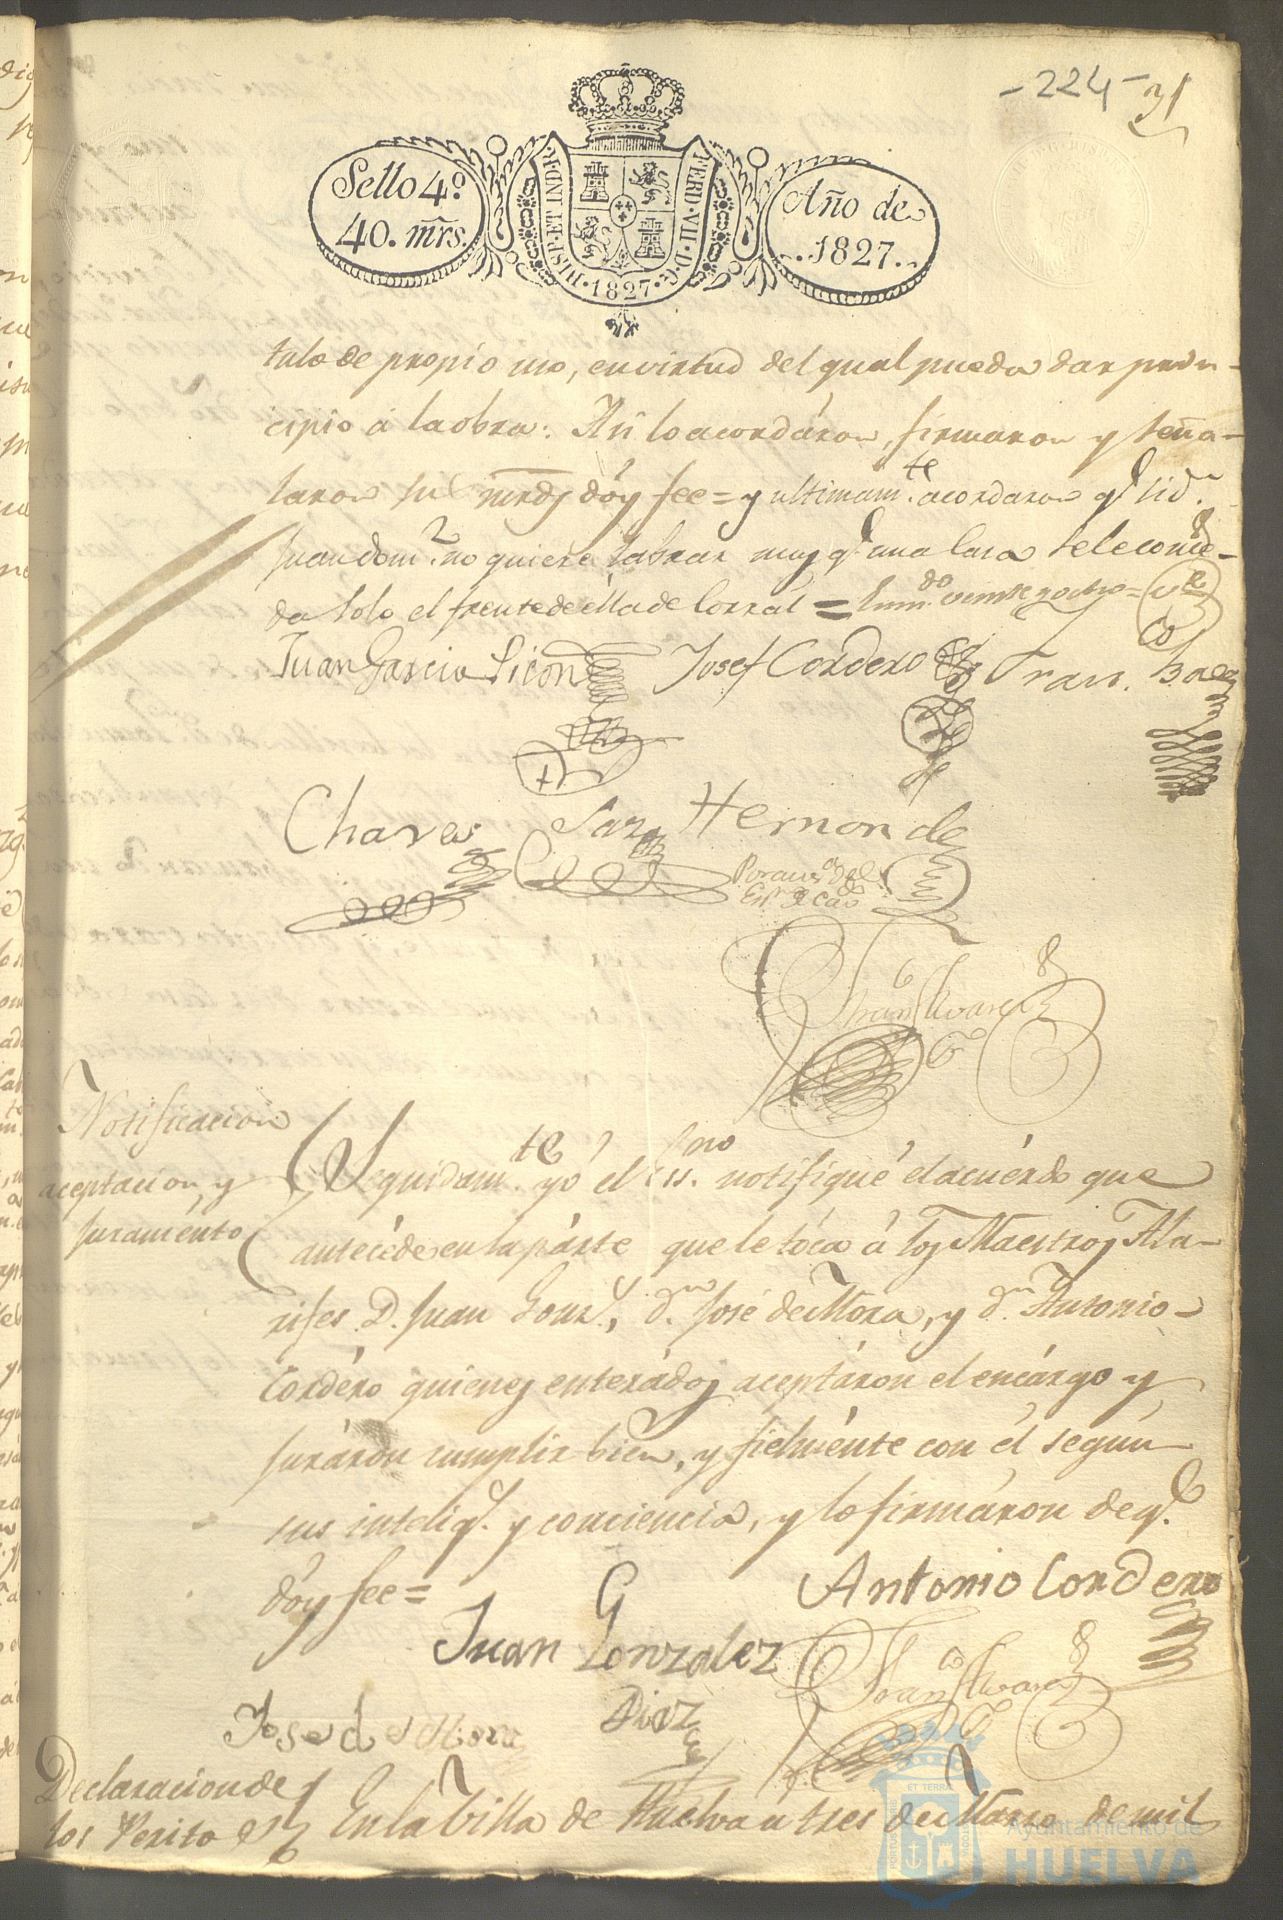 - 224 - 31
Sello 4º
40. mrs.
HISP. ET IND. R.
FERD. VII. D. G.
· 1827 ·
Año de
1827.
tulo de propio uso, en virtud del qual pueda dar prin-
cipio á la obra: Asi lo acordáron, firmaron y seña-
laron sus mrds doy fee = y ultimamte. acordaron qe si dn.
Juan domz. no quiere labrar mas qe una casa se le conce-
da solo el frente de ella de corral = Enmdo. veinte y ocho =
Juan Garcia Picon Josef Cordero Fran. Baez
Chaves Saz Hernande
Por acdo. del
Franco. Alvarez
Notificacion
aceptacion, y
juramento
Seguidamte. yo el Essno. notifiqué el acuérdo que
antecéde en la párte que le tóca á los Maestros Ala-
rifes D. Juan Gonz., dn. José de Mora, y dn. Antonio
Cordéro quienes enterádos aceptáron el encárgo y
juráron cumplir bien, y fielménte con él según
sus inteliga. y conciencia, y lo firmáron de qe.
dóy fee =
Antonio Cordero
Juan Gonzalez
Diaz
Franco. Alvarez
Jose de Mora
Declaracion de
los Peritos
En la Villa de Huelva a tres de Marzo de mil
Ayuntamiento de
HUELVA